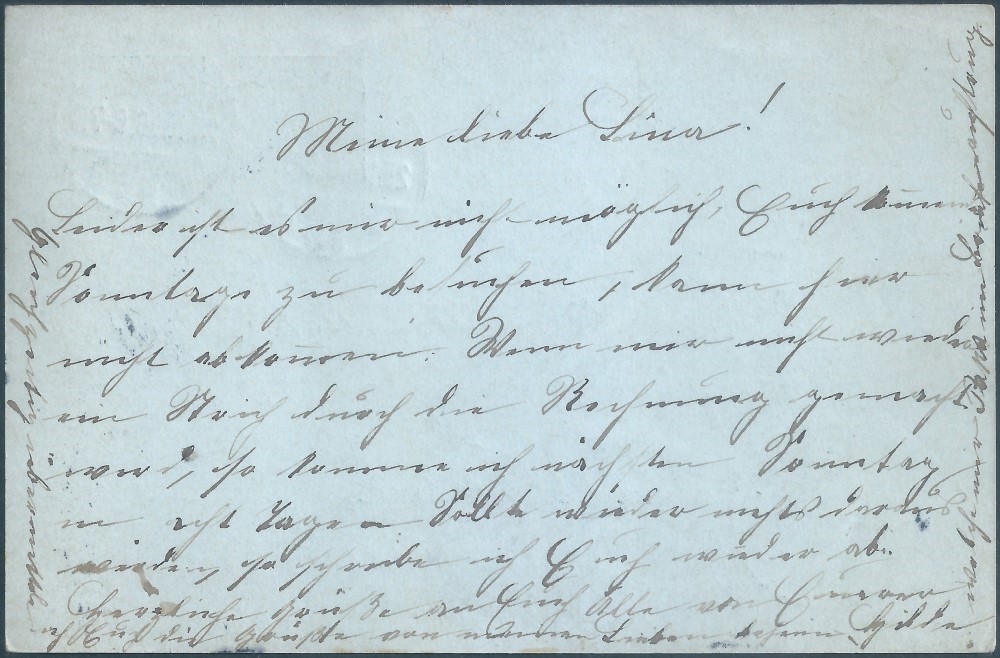 Meine liebe Lina!
Leider ist es mir nicht möglich, Euch kommen
Sonntage zu besuchen, kann hier
nicht abkommen. Wenn mir nicht wieder
ein Strich durch die Rechnung gemacht
wird, so komme ich nächsten Sonntag
in acht Tagen Sollte wieder nichts daraus
werden, so schreibe ich Euch wieder ab.
Herzliche Grüße an Euch Alle von Eurer
Hilda
Gleichzeitig übermittle
ich Euch die Grüße von meinen Lieben